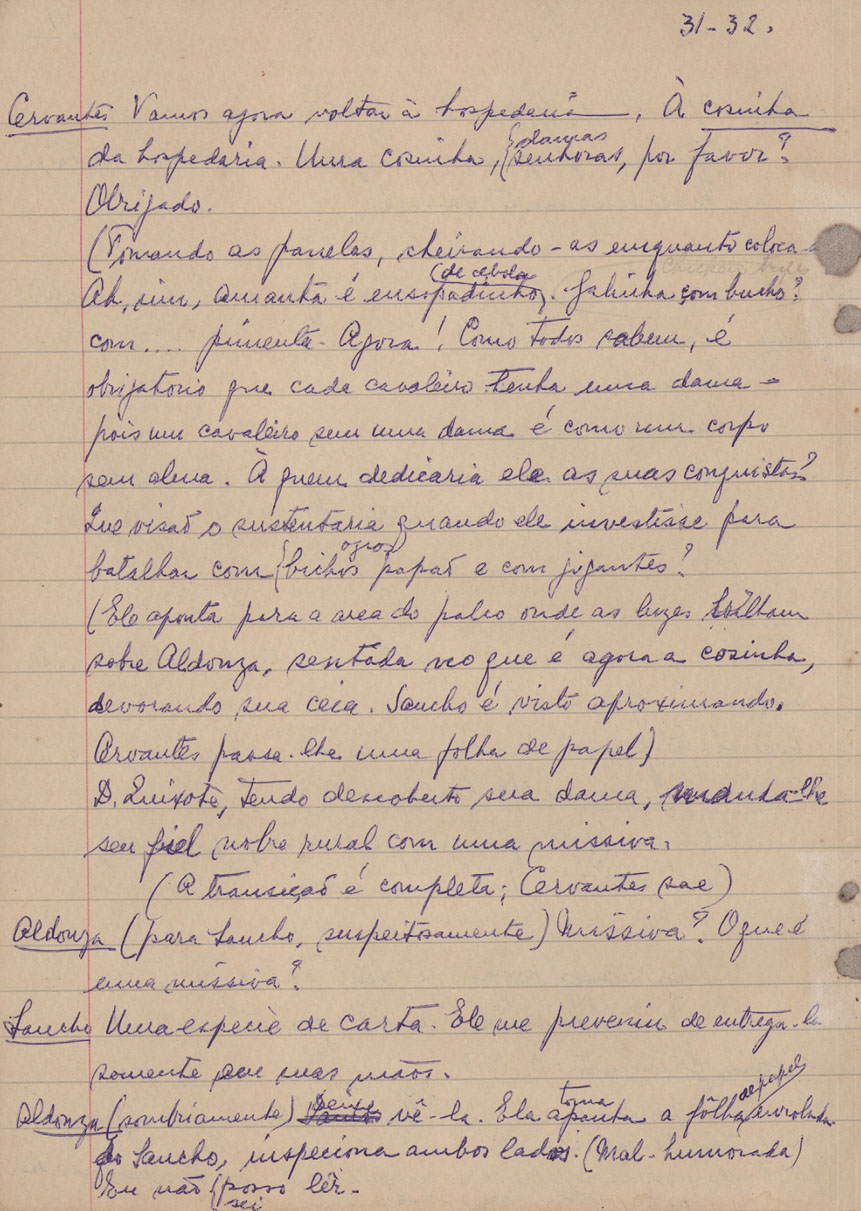 31-32.
Cervantes Vamos agora voltar à hospedaria. À cosinha
damas
da hospedaria. Uma cosinha, senhoras, por favor?
Obrigado.
(Tomando as panelas, cheirando-as enquanto coloca-
(de cebola
Ah, sim, amanhã é ensopadinho. Galinha com bucho?
com.... pimenta- Agora! Como todos sabem, é
obrigatorio que cada cavaleiro tenha uma dama -
pois um cavaleiro sem uma dama é como um corpo
sem alma. À quem dedicaria ele as suas conquistas?
Que visaõ o sustentaria quando ele investisse para
ogros
batalhar com (bichos papaõ e com jigantes?
(Ele aponta para a area do palco onde as luzes brilham
sobre Aldonza, sentada no que é agora a cozinha,
devorando sua ceia. Sancho é visto aproximando.
Cervantes passa-lhe uma folha de papel)
D. Quixote, tendo descoberto sua dama, manda-lhe
seu fiel nobre rural com uma missiva.
(A transiçaõ é completa; Cervantes sae)
Aldonza (para Sancho, suspeitosamente) Missiva? O que é
uma missiva?
Sancho Uma especie de carta. Ele me preveniu de entrega-la
somente em suas mãos.
de papel
toma
Aldonza (sombriamente) Deixe vê-la. Ela aponta a fôlha enrolada
do Sancho, inspeciona ambos lados. (Mal-humorada)
Eu não (posso lêr-
sei